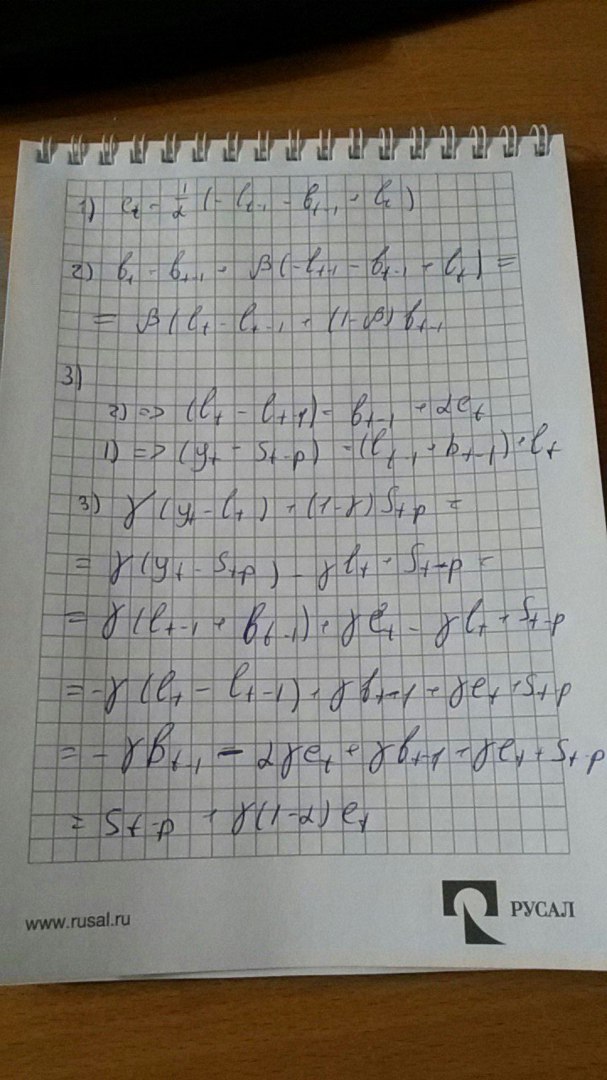 1) e_t = 1/α (-l_{t-1} - b_{t-1} + l_t)
2) b_t = b_{t-1} + β(-l_{t-1} - b_{t-1} + l_t) =
= β(l_t - l_{t-1} + (1-β) b_{t-1}
3)
2) => (l_t - l_{t-1}) = b_{t-1} + αe_t
1) => (y_t - S_{t-p}) = (l_{t-1} + b_{t-1}) + e_t
3) γ(y_t - l_t) + (1-γ)S_{t-p} =
= γ(y_t - S_{t-p}) - γl_t + S_{t-p} =
= γ(l_{t-1} + b_{t-1}) + γe_t - γl_t + S_{t-p}
= -γ(l_t - l_{t-1}) + γb_{t-1} + γe_t + S_{t-p}
= -γb_{t-1} - αγe_t + γb_{t-1} + γe_t + S_{t-p}
= S_{t-p} + γ(1-α)e_t
www.rusal.ru
РУСАЛ